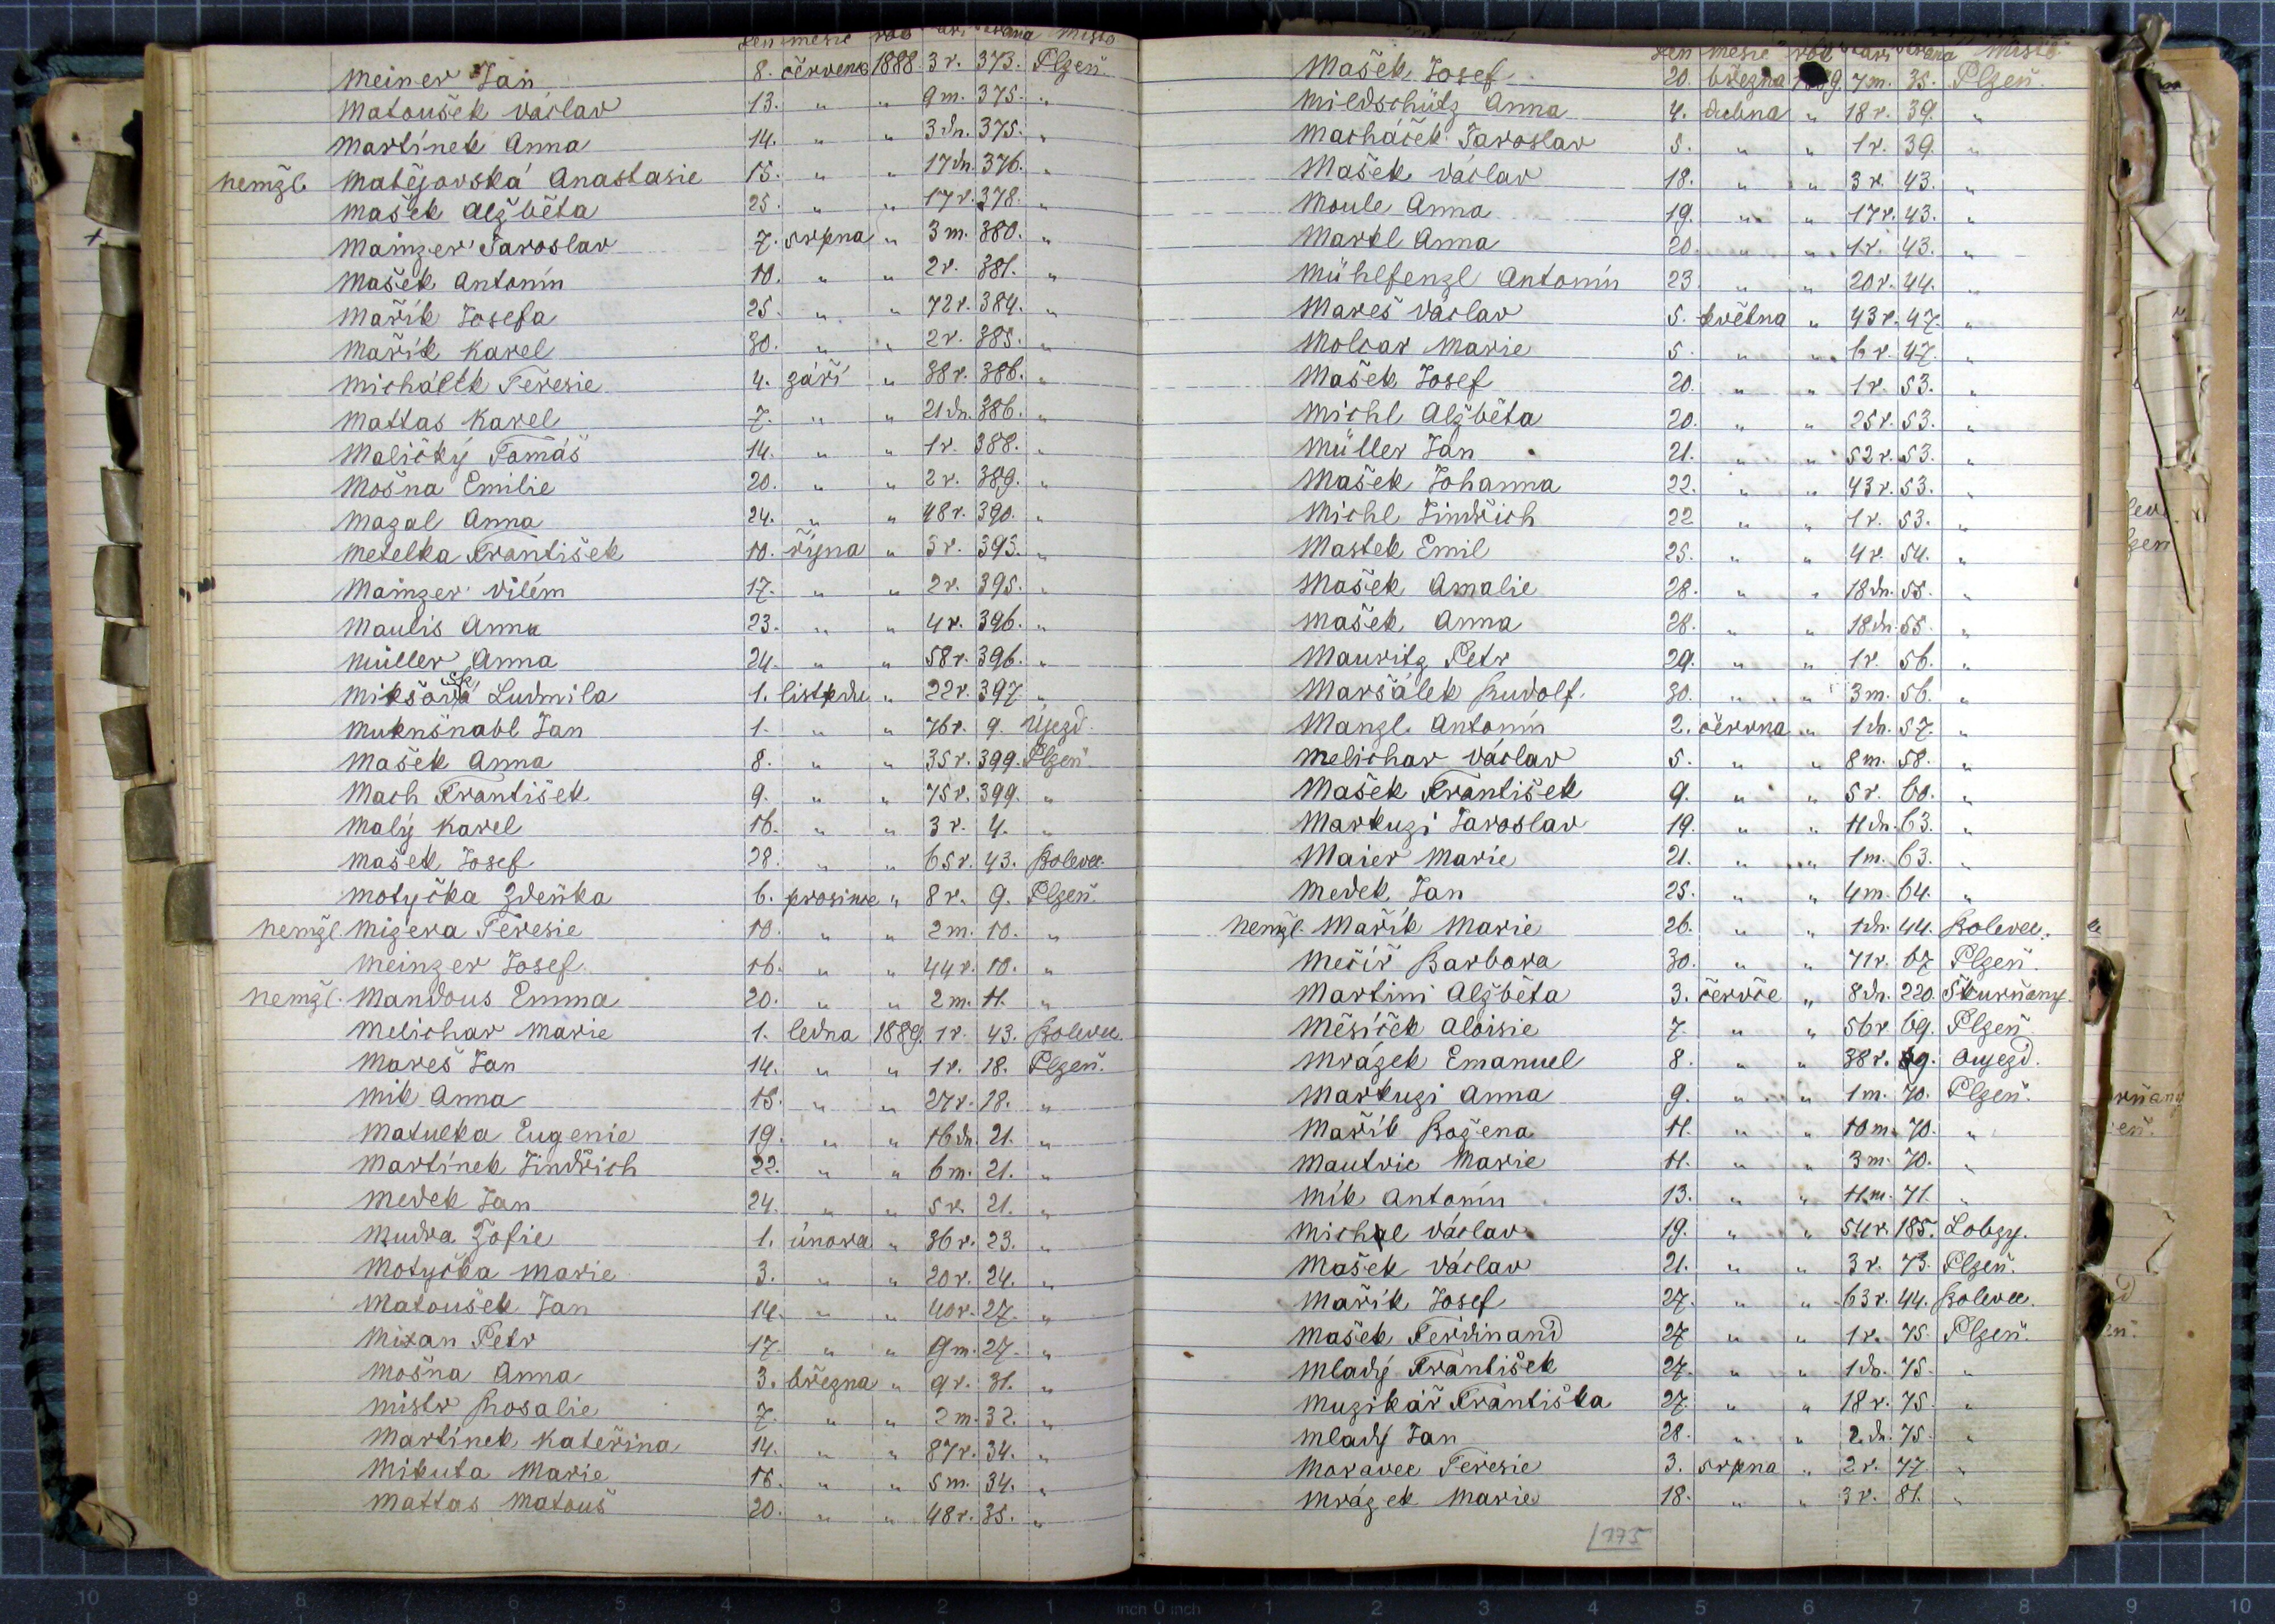 den měsíc rok stáří strana místo
Meiner Jan 8. července 1888 3 r. 373. Plzeň
Matoušek Václav 13. " " 9 m. 375. "
Martínek Anna 14. " " 3 dn. 375. "
nemžl. Matějovská Anastasie 15. " " 17 dn. 376. "
Mašek Alžběta 25. " " 17 r. 378. "
Mainzer Jaroslav 7. srpna " 3 m. 380. "
Mašek Antonín 10. " " 2 r. 381. "
Mařík Josefa 25. " " 72 r. 384. "
Mařík Karel 30. " " 2 r. 385. "
Michálek Teresie 4. září " 38 r. 386. "
Mattas Karel 7. " " 21 dn. 386. "
Maličký Tomáš 14. " " 1 r. 388. "
Mošna Emilie 20. " " 2 r. 389. "
Mazal Anna 24. " " 48 r. 390. "
Metelka František 10. října " 5 r. 393. "
Mainzer Vilém 17. " " 2 r. 395. "
Maulis Anna 23. " " 4 r. 396. "
Müller Anna 24. " " 58 r. 396. "
Ludmila 1. listpdu " 22 r. 397 "
Muknšnabl Jan 1. " " 76 r. 9. Újezd.
Mašek Anna 8. " " 35 r. 399. Plzeň.
Mach František 9. " " 75 r. 399. "
Malý Karel 16. " " 3 r. 4. "
Mašek Josef 28. " " 65 r. 43. Bolevec
Motyčka Zdeňka 6. prosince " 8 r. 9. Plzeň.
nemžl. Mizera Teresie 10. " " 2 m. 10. "
Meinzer Josef. 16. " " 44 r. 10. "
nemžl. Mandous Emma 20. " " 2 m. 11. "
Melichar Marie 1. ledna 1889. 1 r. 43. Bolevec.
Mareš Jan 14. " " 1 r. 18. Plzeň.
Mik Anna 15. " " 27 r. 18. "
Matulka Eugenie 19. " " 16 dn. 21. "
Martínek Jindřich 22. " " 6 m. 21. "
Medek Jan 24. " " 5 r. 21. "
Mudra Žofie 1. února " 36 r. 23. "
Motyčka Marie 3. " " 20 r. 24. "
Matoušek Jan 14. " " 40 r. 27. "
Mixan Petr 17. " " 9 m. 27. "
Mošna Anna 3. března " 9 r. 31. "
Mistr Rosalie 7. " " 2 m. 32. "
Martínek Kateřina 14. " " 87 r. 34. "
Mikuta Marie 16. " " 5 m. 34. "
Mattas Matouš 20. " " 48 r. 35. "
den měsíc rok stáří strana místo
Mašek Josef 20. března 1889. 7 m. 35. Plzeň.
Mildschütz Anna 4. dubna " 18 r. 39. "
Macháček Jaroslav 5. " " 1 r. 39. "
Mašek Václav 18. " " 3 r. 43. "
Moule Anna 19. " " 17 r. 43. "
Markl Anna 20. " " 1 r. 43. "
Mühlfenzl Antonín 23. " " 20 r. 44. "
Mareš Václav 5. května " 43 r. 47. "
Molcar Marie 5. " " 6 r. 47. "
Mašek Josef 20. " " 1 r. 53. "
Michl Alžběta 20. " " 25 r. 53. "
Müller Jan 21. " " 52 r. 53. "
Mašek Johanna 22. " " 43 r. 53. "
Michl Jindřich 22 " " 1 r. 53. "
Mastek Emil 25. " " 4 r. 54. "
Mašek Amalie 28. " " 18 dn. 55. "
Mašek Anna 28. " " 18 dn. 55. "
Mauritz Petr 29. " " 1 r. 56. "
Maršálek Rudolf. 30. " " 3 m. 56. "
Mangl Antonín 2. června " 1 dn. 57. "
Melichar Václav 5. " " 8 m. 58. "
Mašek František 9. " " 5 r. 60. "
Markuzi Jaroslav 19. " " 11 dn. 63. "
Maier Marie 21. " " 1 m. 63. "
Medek Jan 25. " " 4 m. 64. "
nemžl. Mařík Marie 26. " " 1 dn. 44. Bolevec.
Mečíř Barbora 30. " " 71 r. 67 Plzeň.
Martini Alžběta 3. červce " 8 dn. 220. Škurňany.
Měsíček Aloisie 7. " " 56 r. 69. Plzeň
Mrázek Emanuel 8. " " 38 r. 69. Oujezd.
Markuzi Anna 9. " " 1 m. 70. Plzeň.
Mařík Božena 11. " " 10 m. 70. "
Mautric Marie 11. " " 3 m. 70. "
Mik Antonín 13. " " 11 m. 71. "
Michal Václav 19. " " 54 r. 185. Lobzy.
Mašek Václav 21. " " 3 r. 73. Plzeň.
Mařík Josef 27. " " 63 r. 44. Bolevec.
Mašek Ferdinand 27 " " 1 r. 75. Plzeň.
Mladý František 27. " " 1 dn. 75. "
Muzikář Františka 27. " " 18 r. 75. "
Mladý Jan 28. " " 2 dn. 75. "
Moravec Teresie 3. srpna " 2 r. 77. "
Mrázek Marie 18. " " 3 r. 81. "
175
10 9 8 7 6 5 4 3 2 1 inch 0 inch 1 2 3 4 5 6 7 8 9 10